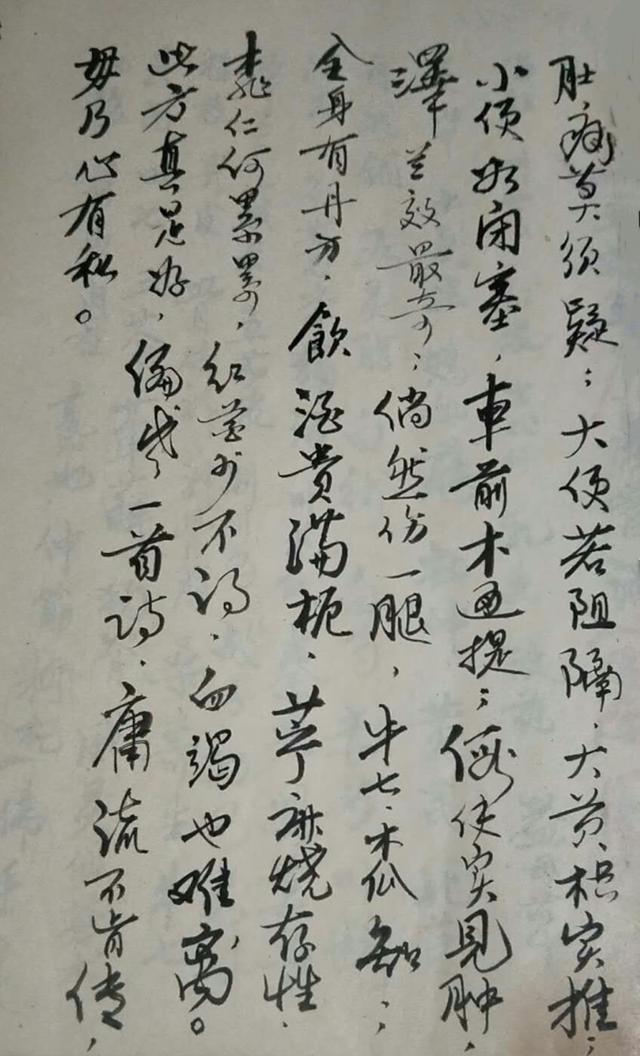 肚痛莫须疑；大便若阻隔，大黄枳实推；
小便如闭塞，車前木通提；假使实見肿，
澤兰效最奇；倘然伤一腿，牛七·木瓜知；
全身有丹方，飲酒貴满枙，苧麻烧存性，
桃仁何累累，红花少不得，血竭也难离。
此方真是好，编成一首诗，庸流不肯传，
毋乃心有私。